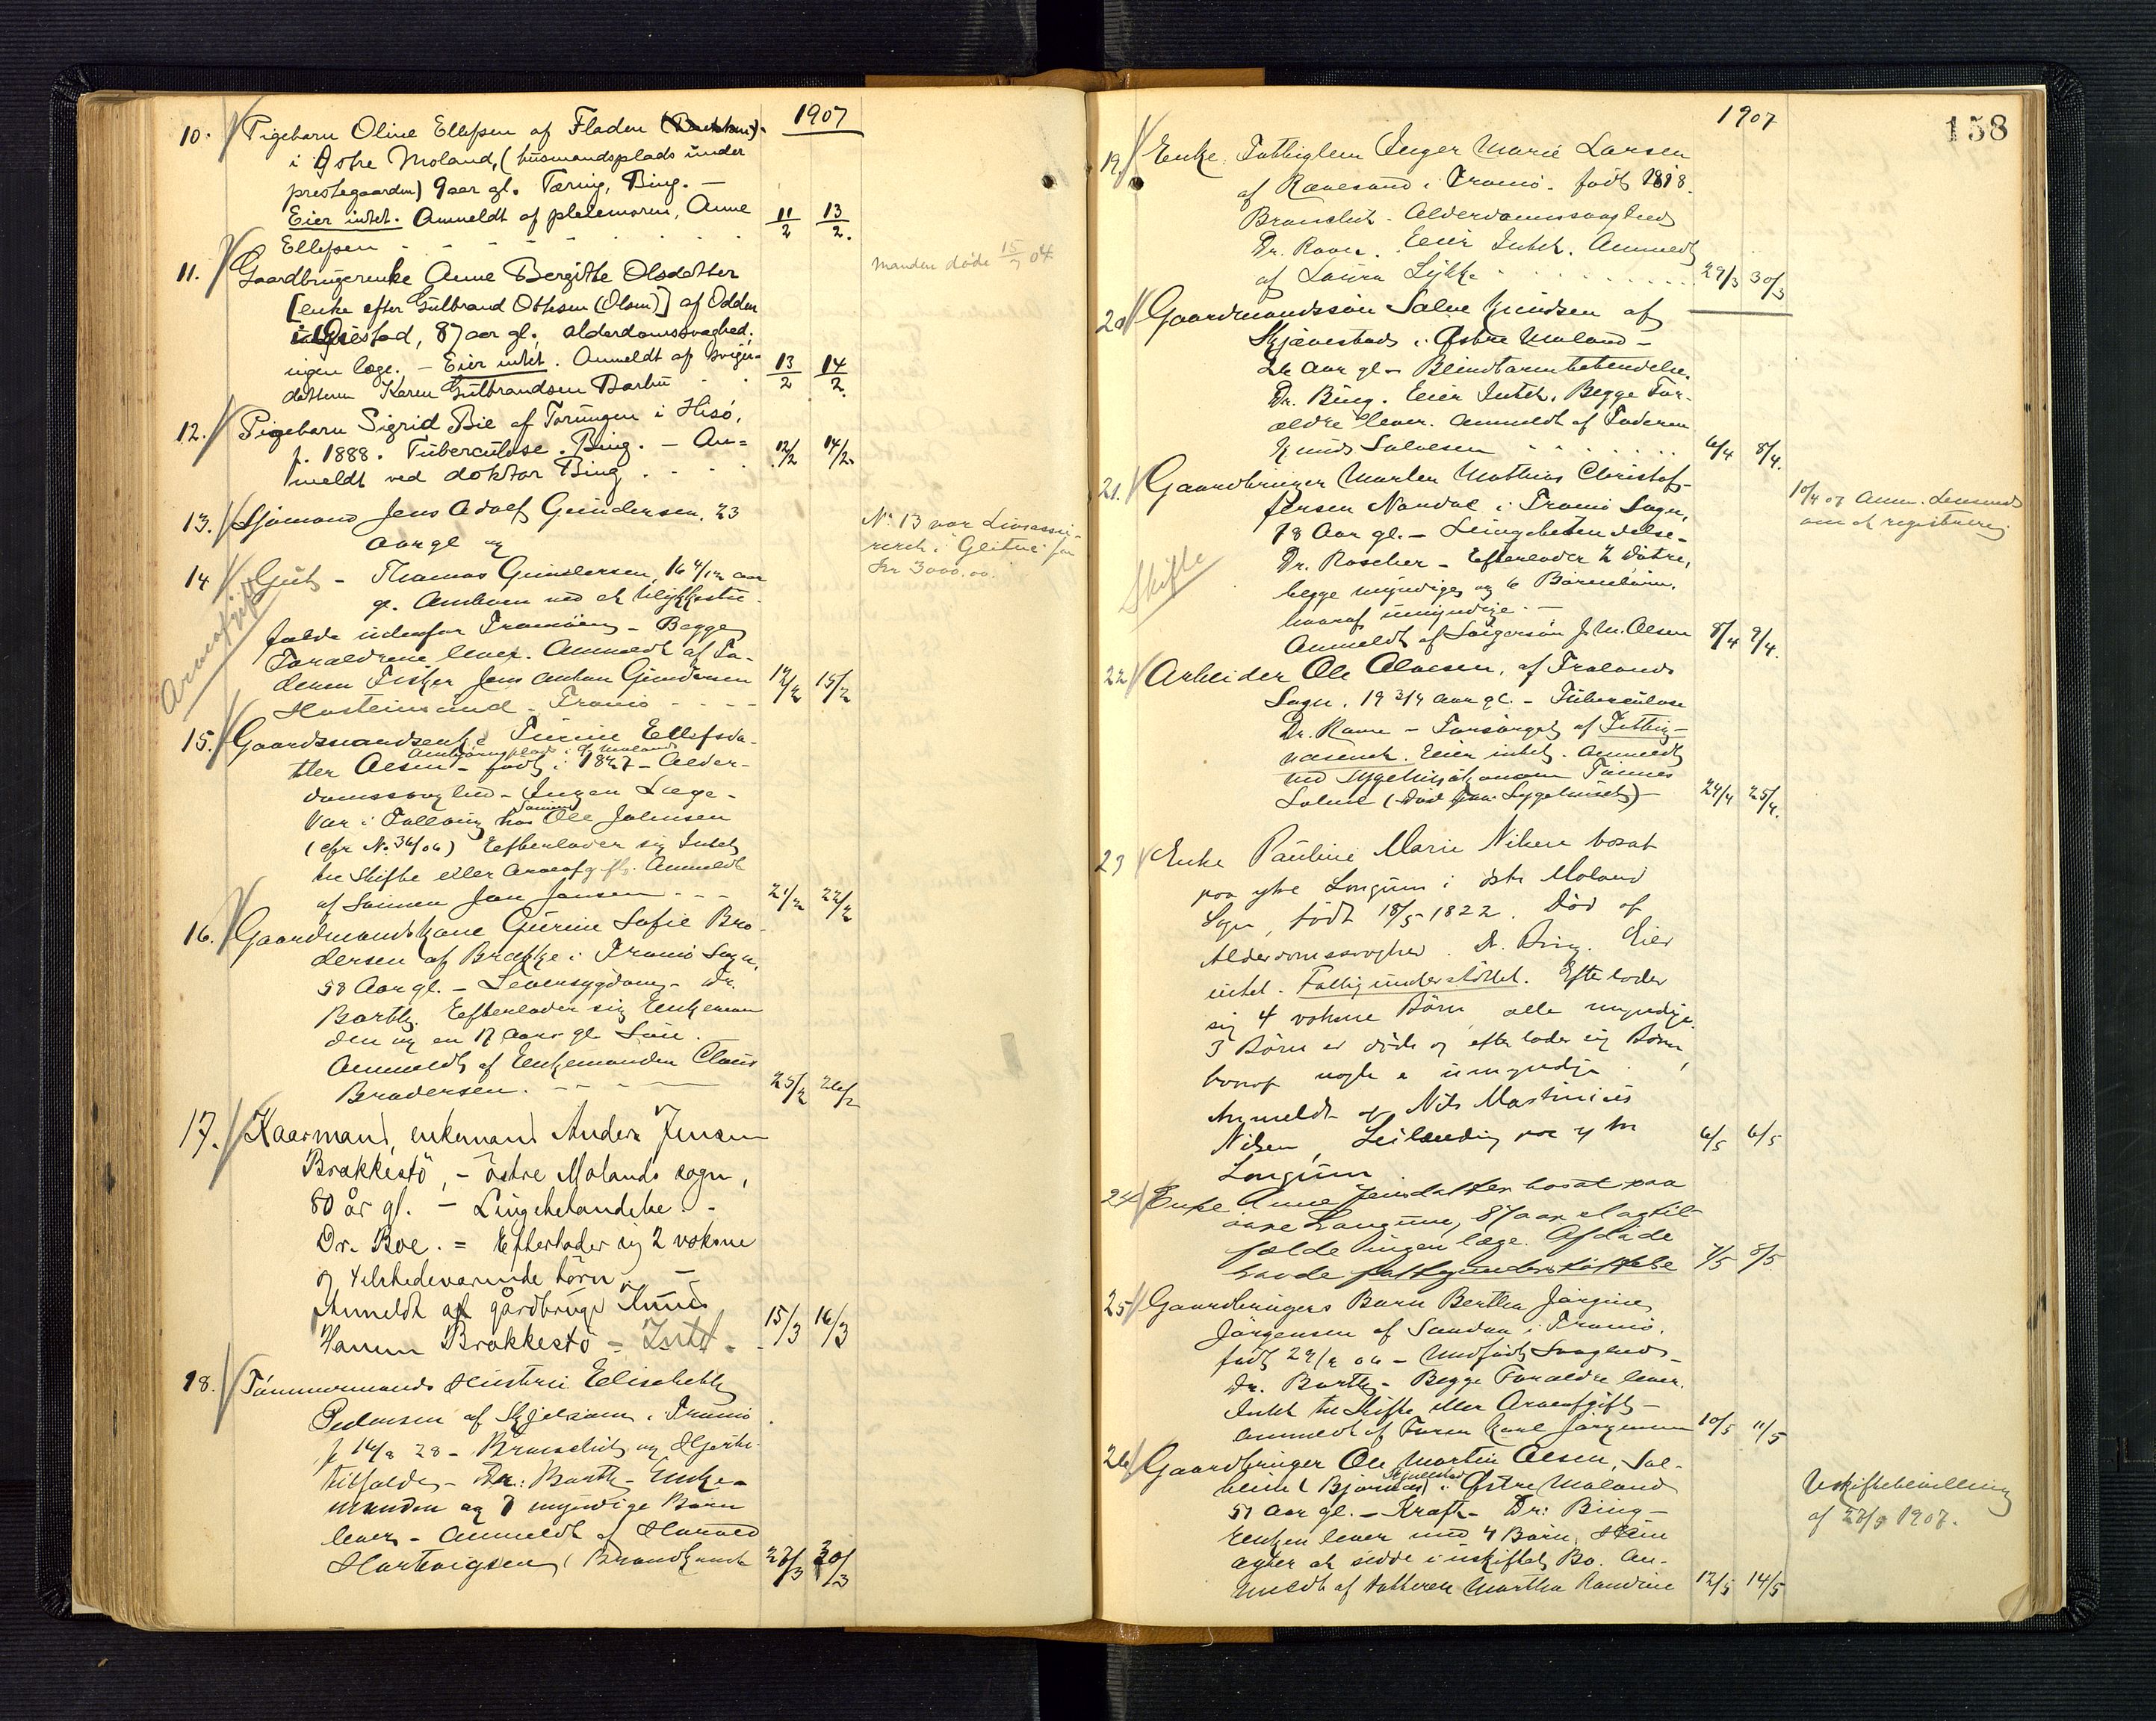 1907
10. Pigebarn Oline Ellefsen af Fladen
i Østre Moland, (husmandsplads under
prestegaarden) 9 aar gl. Tæring, Bing. -
Eier intet. Anmeldt af pleiemoren, Anne
Ellefsen 11/2 13/2.
11. Gaardbrugerenke Anne Bergithe Olsdatter
Manden døde 15/7 04
[enke efter Gulbrand Othsen (Olsen)] af Odden
i Øiestad, 87 aar gl., alderdomssvaghed,
ingen læge. - Eier intet. Anmeldt af sviger-
datteren Karen Gulbrandsen Barbu 13/2 14/2.
12. Pigebarn Sigrid Bie af Torungen i Hisø,
f. 1888. Tuberculose. Bing. - An=
meldt ved doktor Bing. 12/2 14/2.
13. Sjømand Jens Adolf Gundersen, 23
Aar gl og
No 13 var Livsassu-
reret i Glitne for
Kr 3000.00.
14 Gut - Thomas Gundersen, 16 4/12 aar
gl. Omkom ved et Ulykkestil-
fælde udenfor Tromøen - Begge
Forældrene lever. Anmeldt af Fa-
deren Fisker Jens Anton Gundersen
Hastensund - Tromø 14/2 15/2
Arveafgift
15. Gaardmandsenke Turine Ellefsda-
tter Olsen - født i 1827 - Alder-
domssvaghed - Ingen Læge -
Var i Follaug hos Sønnen Ole Johnsen
(cfr No. 36/06) Efterlader sig Intet
til Skifte eller Arveafgift. Anmeldt
af Sønnen Jan Jansen 21/2 22/2
16. Gaardmandskone Gurine Sofie Bro-
dersen af Brække i Tromø Sogn,
58 Aar gl. - Leversygdom - Dr.
Barth. Efterlader sig Enkeman
den og en 17 Aar gl Søn.
Anmeldt af Enkemanden Claus
Brodersen. 25/2 26/2
17. Kaarmand, enkemand Anders Jensen
Brækkestö, - östre Molands sogn,
80 år gl. - Lungebetændelse. -
Dr. Boe. = Efterlader sig 2 voksne
og tilstedeværende börn. -
Anmeldt af gårdbruger Knud
Hansen Brækkestö - Intet. 15/3 16/3
18. Tømmermands Hustru Elisabeth
Pedersen af Skjelsam i Tromø
f 16/8 28 - Bronchit og Hjerte-
tilfælde - Dr: Barth - Enke-
manden og 7 myndige Børn
lever - Anmeldt af Harald
Hartvigsen, Brandkonst 27/3 30/3
158
1907
19. Enke, Fattiglem Inger Marie Larsen
af Rævesand i Tromø. født 1818.
Bronchit. Alderdomssvaghed
Dr. Ravn. Eier Intet. Anmeldt
af Laura Lykke 29/3 30/3
20 Gaardmandssøn Salve Knudsen af
Skjævestad i Østre Moland -
26 Aar gl - Blindtarmbetændelse.
Dr. Bing. Eier Intet. Begge For-
ældre lever. Anmeldt af Faderen
Knud Salvesen 6/4 8/4.
21. Gaardbruger Morten Mathias Christof-
fersen Nordal i Tromø Sogn,
78 Aar gl. - Lungebetændelse -
Dr. Roscher - Efterlader 2 Døtre,
begge myndige og 6 Børnebørn,
hvoraf umyndige. -
Anmeldt af Svigersøn J. M. Olsen 8/4 9/4.
Skifte
10/4 07 Anm. Lensmd
om at registrere.
22 Arbeider Ole Olavesen, af Frolands
Sogn, 19 3/4 aar gl. - Tuberculose
Dr. Ravn - Forsørget af Fattig-
væsenet. Eier intet. Anmeldt
ved Sygehusøkonom Tønnes
Salve (Død paa Sygehuset) 24/4 25/4.
23 Enke Pauline Marie Nilsen bosat
paa ytre Longum i östre Moland
Sogn, født 18/5 1822. Död af
Alderdomssvaghed. Dr. Bing. Eier
intet. Fattigunderstöttet. Efterlader
sig 4 voksne Börn, alle myndige.
3 Börn er döde og efterlader sig Börn,
hvoraf nogle er umyndige.
Anmeldt af Nils Martinius
Nilsen, Leilænding paa ytre
Longum. 6/5 6/5
24 Enke Anne Jensdatter bosat paa
øvre Longum, 87 aar slagtil-
fælde Ingen læge. Afdøde
havde fattigunderstøttelse 7/5 8/5.
25 Gaardbrugers Barn Bertha Jørgine
Jørgensen af Sandum i Tromø.
født 29/12 06 - Medfødt Svaghed -
Dr. Barth - Begge Forældre lever.
Intet til Skifte eller Arveafgift -
Anmeldt af Faren Karl Jørgensen 10/5 11/5
26 Gaardbruger Ole Martin Olsen, Sol-
heim i Østre Moland
51 Aar gl. - Kræft - Dr: Bing -
Enken lever med 4 Børn. Hun
agter at sidde i uskiftet Bo. An-
meldt af Datteren Martha Randine 12/5 14/5
Uskiftebevilling
af 27/5 1907.